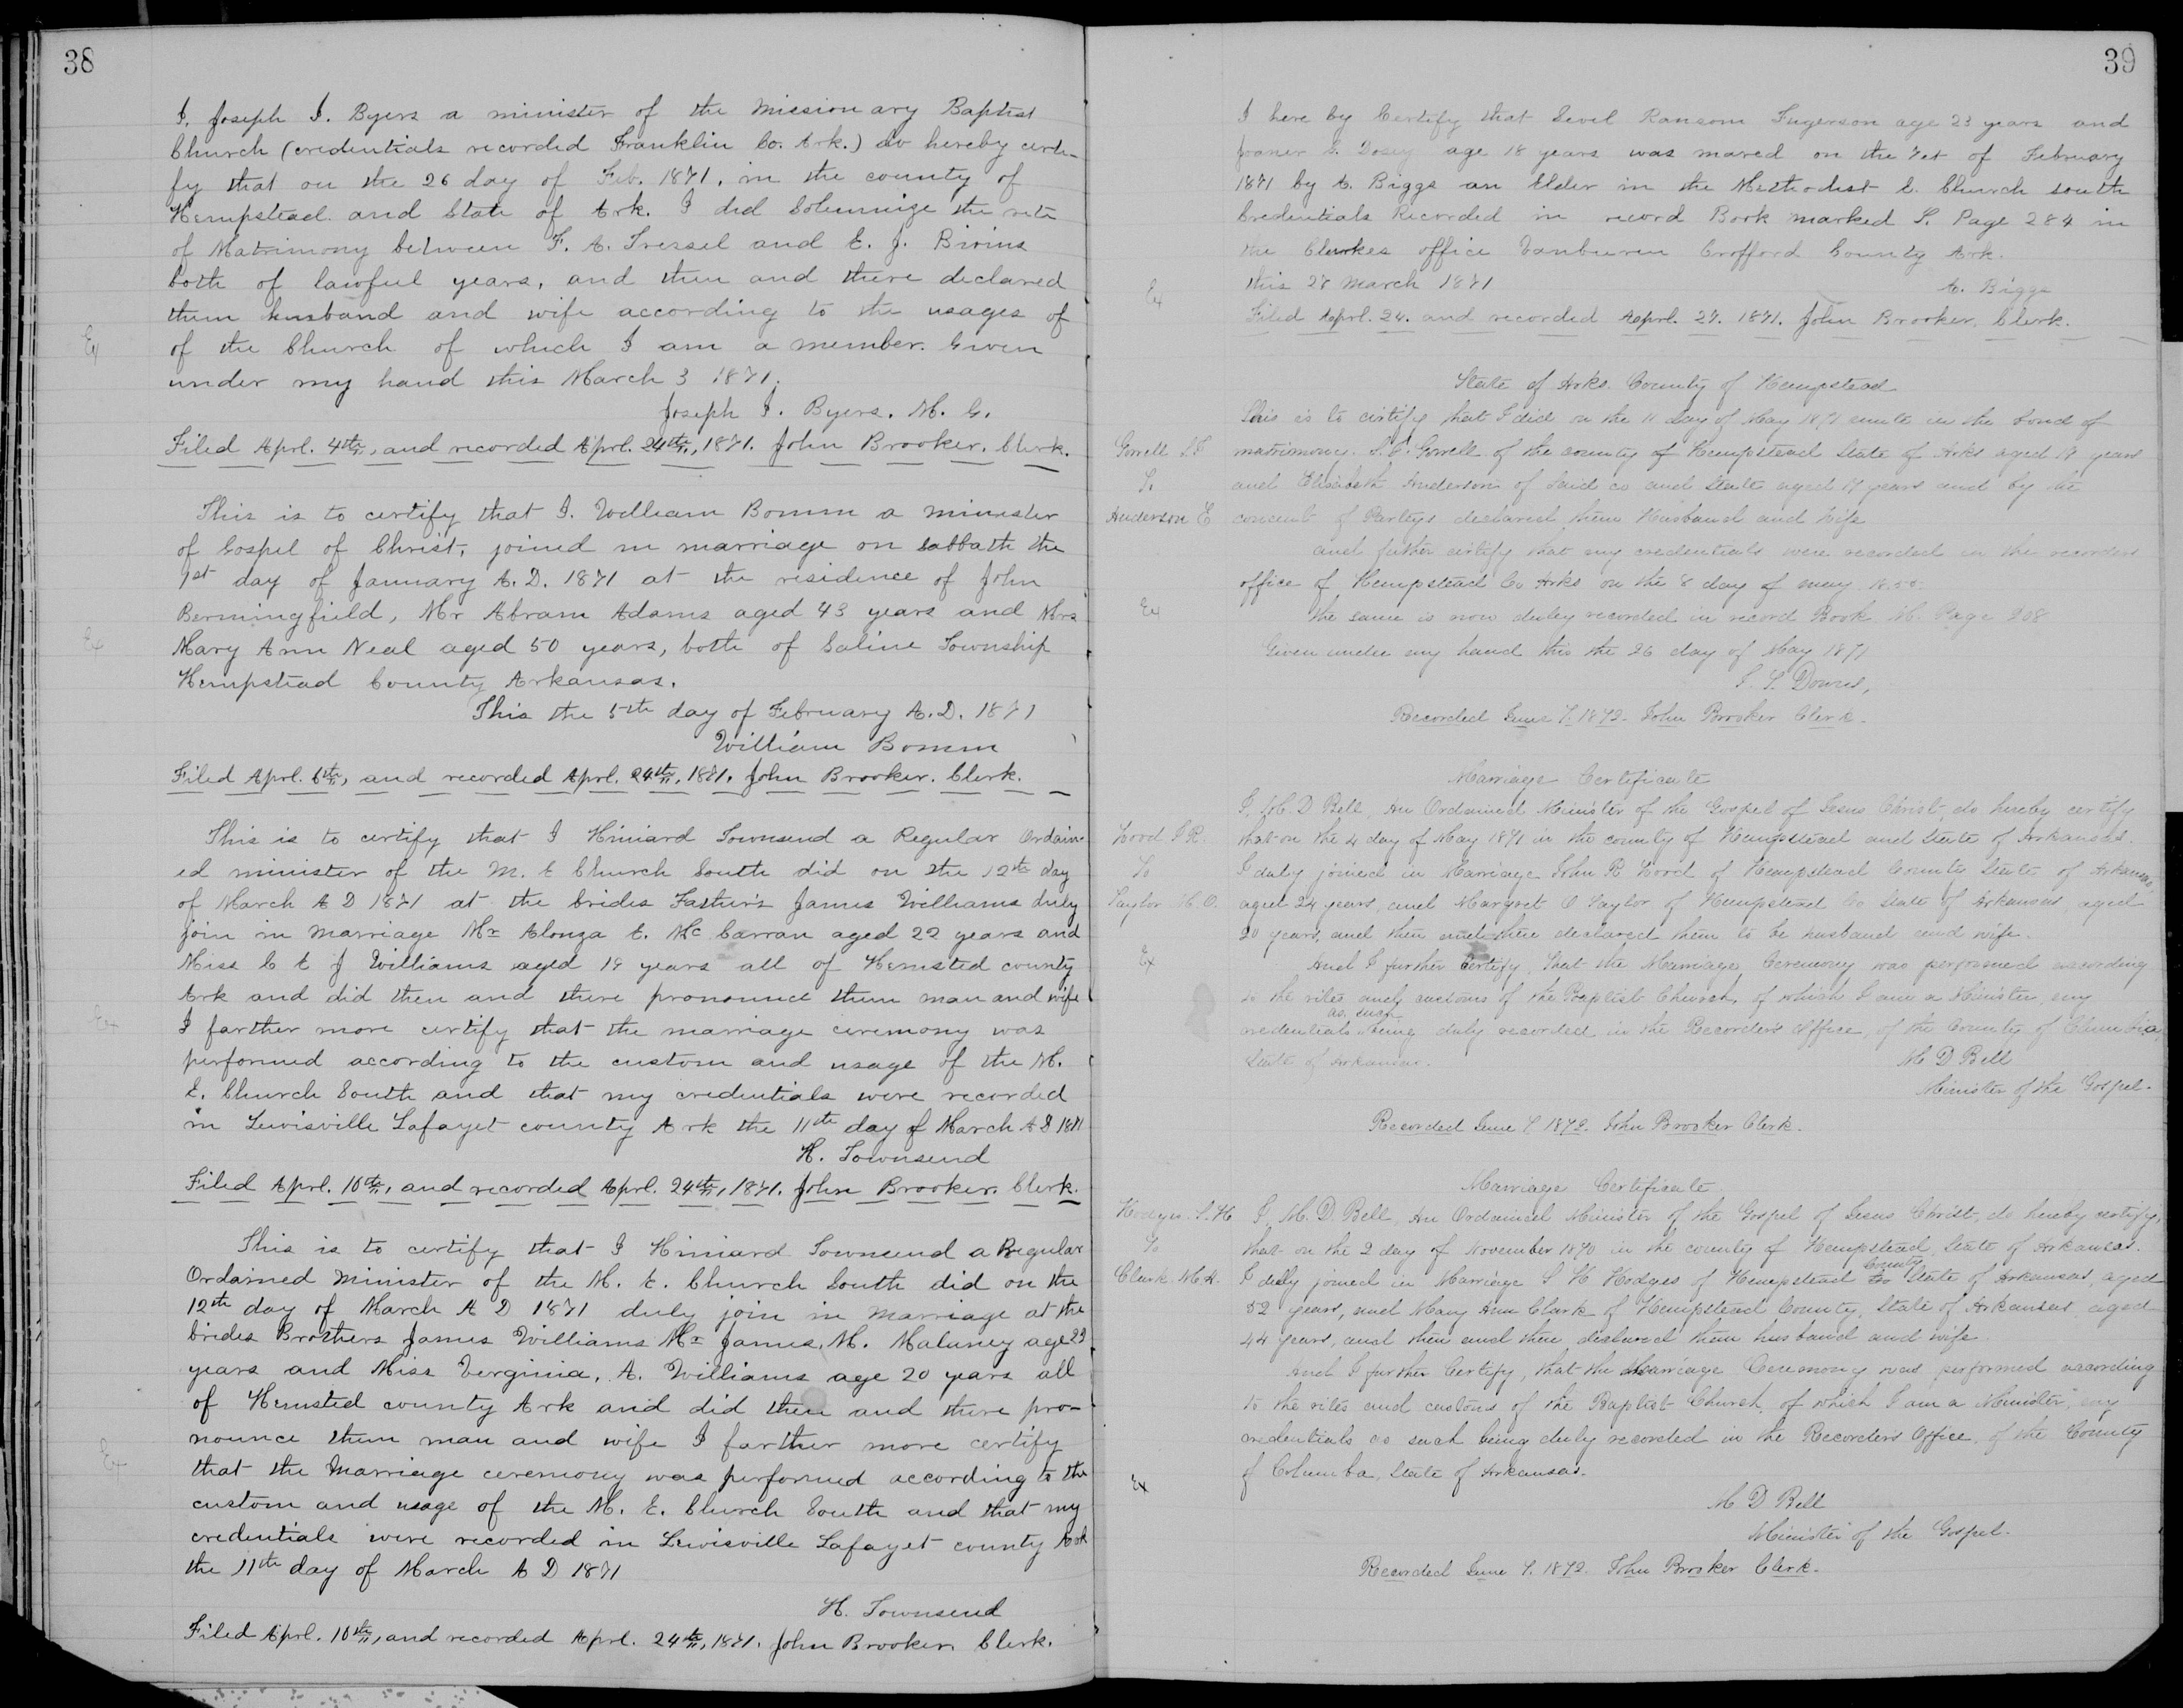 38
I. Joseph I. Byers a minister of the Missionary Baptist
Church (credentials recorded Franklin Co. Ark.) do hereby certi-
fy that on the 26 day of Feb. 1871. in the county of
Hempstead and State of Ark. I did Solemnize the rite
of Matrimony between F. A. and E. J. Bivins
both of lawful years, and then and there declared
them husband and wife according to the usages of
of the Church of which I am a member. Given
Ex
under my hand this March 3 1871.
Joseph I. Byers. M. G.
Filed Aprl. 4th, and recorded Aprl. 24th, 1871. John Brooker. Clerk.
This is to certify that I. William Bomm a minister
of Gospel of Christ, joined in marriage on Sabbath the
1st day of January A. D. 1871 at the residence of John
Bermingfield, Mr Abram Adams aged 43 years and Mrs
Ex
Mary Ann Neal aged 50 years, both of Saline Township
Hempstead County Arkansas.
This the 5th day of February A. D. 1871
William Bomm
Filed Aprl. 6th, and recorded Aprl. 24th, 1871. John Brooker. Clerk.
This is to certify that I Hiniard Townsend a Regular Ordain-
ed minister of the M. E Church South did on the 12th day
of March A D 1871 at the brides Father's James Williams duly
join in marriage Mr Alonza E. McCarran aged 22 years and
Miss C E J Williams aged 19 years all of Hemsted county
Ark and did then and there pronounce them man and wife
Ex
I farther more certify that the marriage ceremony was
performed according to the custom and usage of the M.
E. Church South and that my credentials were recorded
in Lewisville Lafayet county Ark the 11th day of March A D 1871
H. Townsend
Filed Aprl. 10th, and recorded Aprl. 24th, 1871. John Brooker. Clerk.
This is to certify that I Hiniard Townsend a Regular
Ordained Minister of the M. E. Church South did on the
12th day of March A D 1871 duly join in marriage at the
brides Brothers James Williams Mr James. M. Maluney age 23
years and Miss Verginia. A. Williams age 20 years all
of Hemsted county Ark and did then and there pro-
nounce them man and wife I farther more certify
Ex
that the Marriage ceremony was performed according to the
custom and usage of the M. E. Church South and that my
credentials were recorded in Lewisville Lafayet county Ark
the 11th day of March A D 1871
H. Townsend
Filed Aprl. 10th, and recorded Aprl. 24th, 1871. John Brooker. Clerk.
39
I here by Certify that Ransom Fugerson age 23 years and
S. Dosey age 18 years was mared on the of February
1871 by A. Biggs an Elder in the Methodist E. Church South
Credentials Recorded in record Book marked S. Page 284 in
the Clerkes office Vanburen Crofford County Ark.
Ex
this 28 March 1871
A. Biggs
Filed Aprl. 24. and recorded Aprl. 27. 1871. John Brooker. Clerk.
State of Arks. County of Hempstead
This is to certify that I did on the 11 day of May 1871 unite in the bond of
Gorrell S.P.
matrimony. S. P. Gorrell of the county of Hempstead State of Arks aged 19 years
To
and Elisabeth Anderson of Said co and State aged 17 years and by the
Anderson E
concent of Partys declared them Husband and Wife
and futher certify that my credentials were recorded in the recorders
office of Hempstead Co Arks on the 8 day of may 18
Ex
the same is now duley recorded in record Book M. Page 208
Given under my hand this the 26 day of May 1871
Downs,
Recorded June 7. 1872. John Brooker Clerk.
Marriage Certificate
I, M. D Bell, An Ordained Minister of the Gospel of Jesus Christ, do hereby certify
that on the 4 day of May 1871 in the county of Hempstead and State of Arkansas.
To
I duly joined in Marriage John R of Hempstead County State of Arkansas,
Taylor M. O.
aged 24 years, and Margret O Taylor of Hempstead Co State of Arkansas, aged
20 years, and then and there declared them to be husband and wife.
Ex
And I further Certify, That the Marriage Ceremony was performed according
to the rites and customs of the Baptist Church, of which I am a Minister, my
credentials as such being duly recorded in the Recorders Office, of the County of Columbia,
State of Arkansas.
M D Bell
Minister of the Gospel.
Recorded June 7 1872. John Brooker Clerk.
Marriage Certificate
Hodges. S. H
I, M. D. Bell, An Ordained Minister of the Gospel of Jesus Christ, do hereby certify,
To
that on the 2 day of November 1870 in the county of Hempstead, State of Arkansas.
Clark M. A.
I duly joined in Marriage S H Hodges of Hempstead County State of Arkansas, aged
52 years, and Mary Ann Clark of Hempstead County, State of Arkansas aged
44 years, and then and there declared them husband and wife
And I further Certify, that the Marriage Ceremony was performed according
to the rites and customs of the Baptist Church, of which I am a Minister, my
credentials as such being duly recorded in the Recorders Office, of the County
Ex
of Columba, State of Arkansas.
M D Bell
Minister of the Gospel.
Recorded June 7. 1872. John Brooker Clerk.